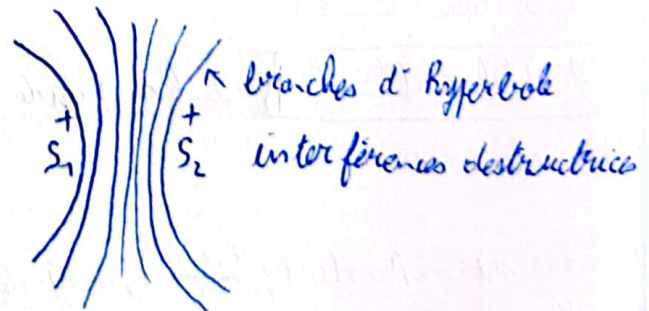 branches d'hyperbole
S₁ S₂ interférences destructrices